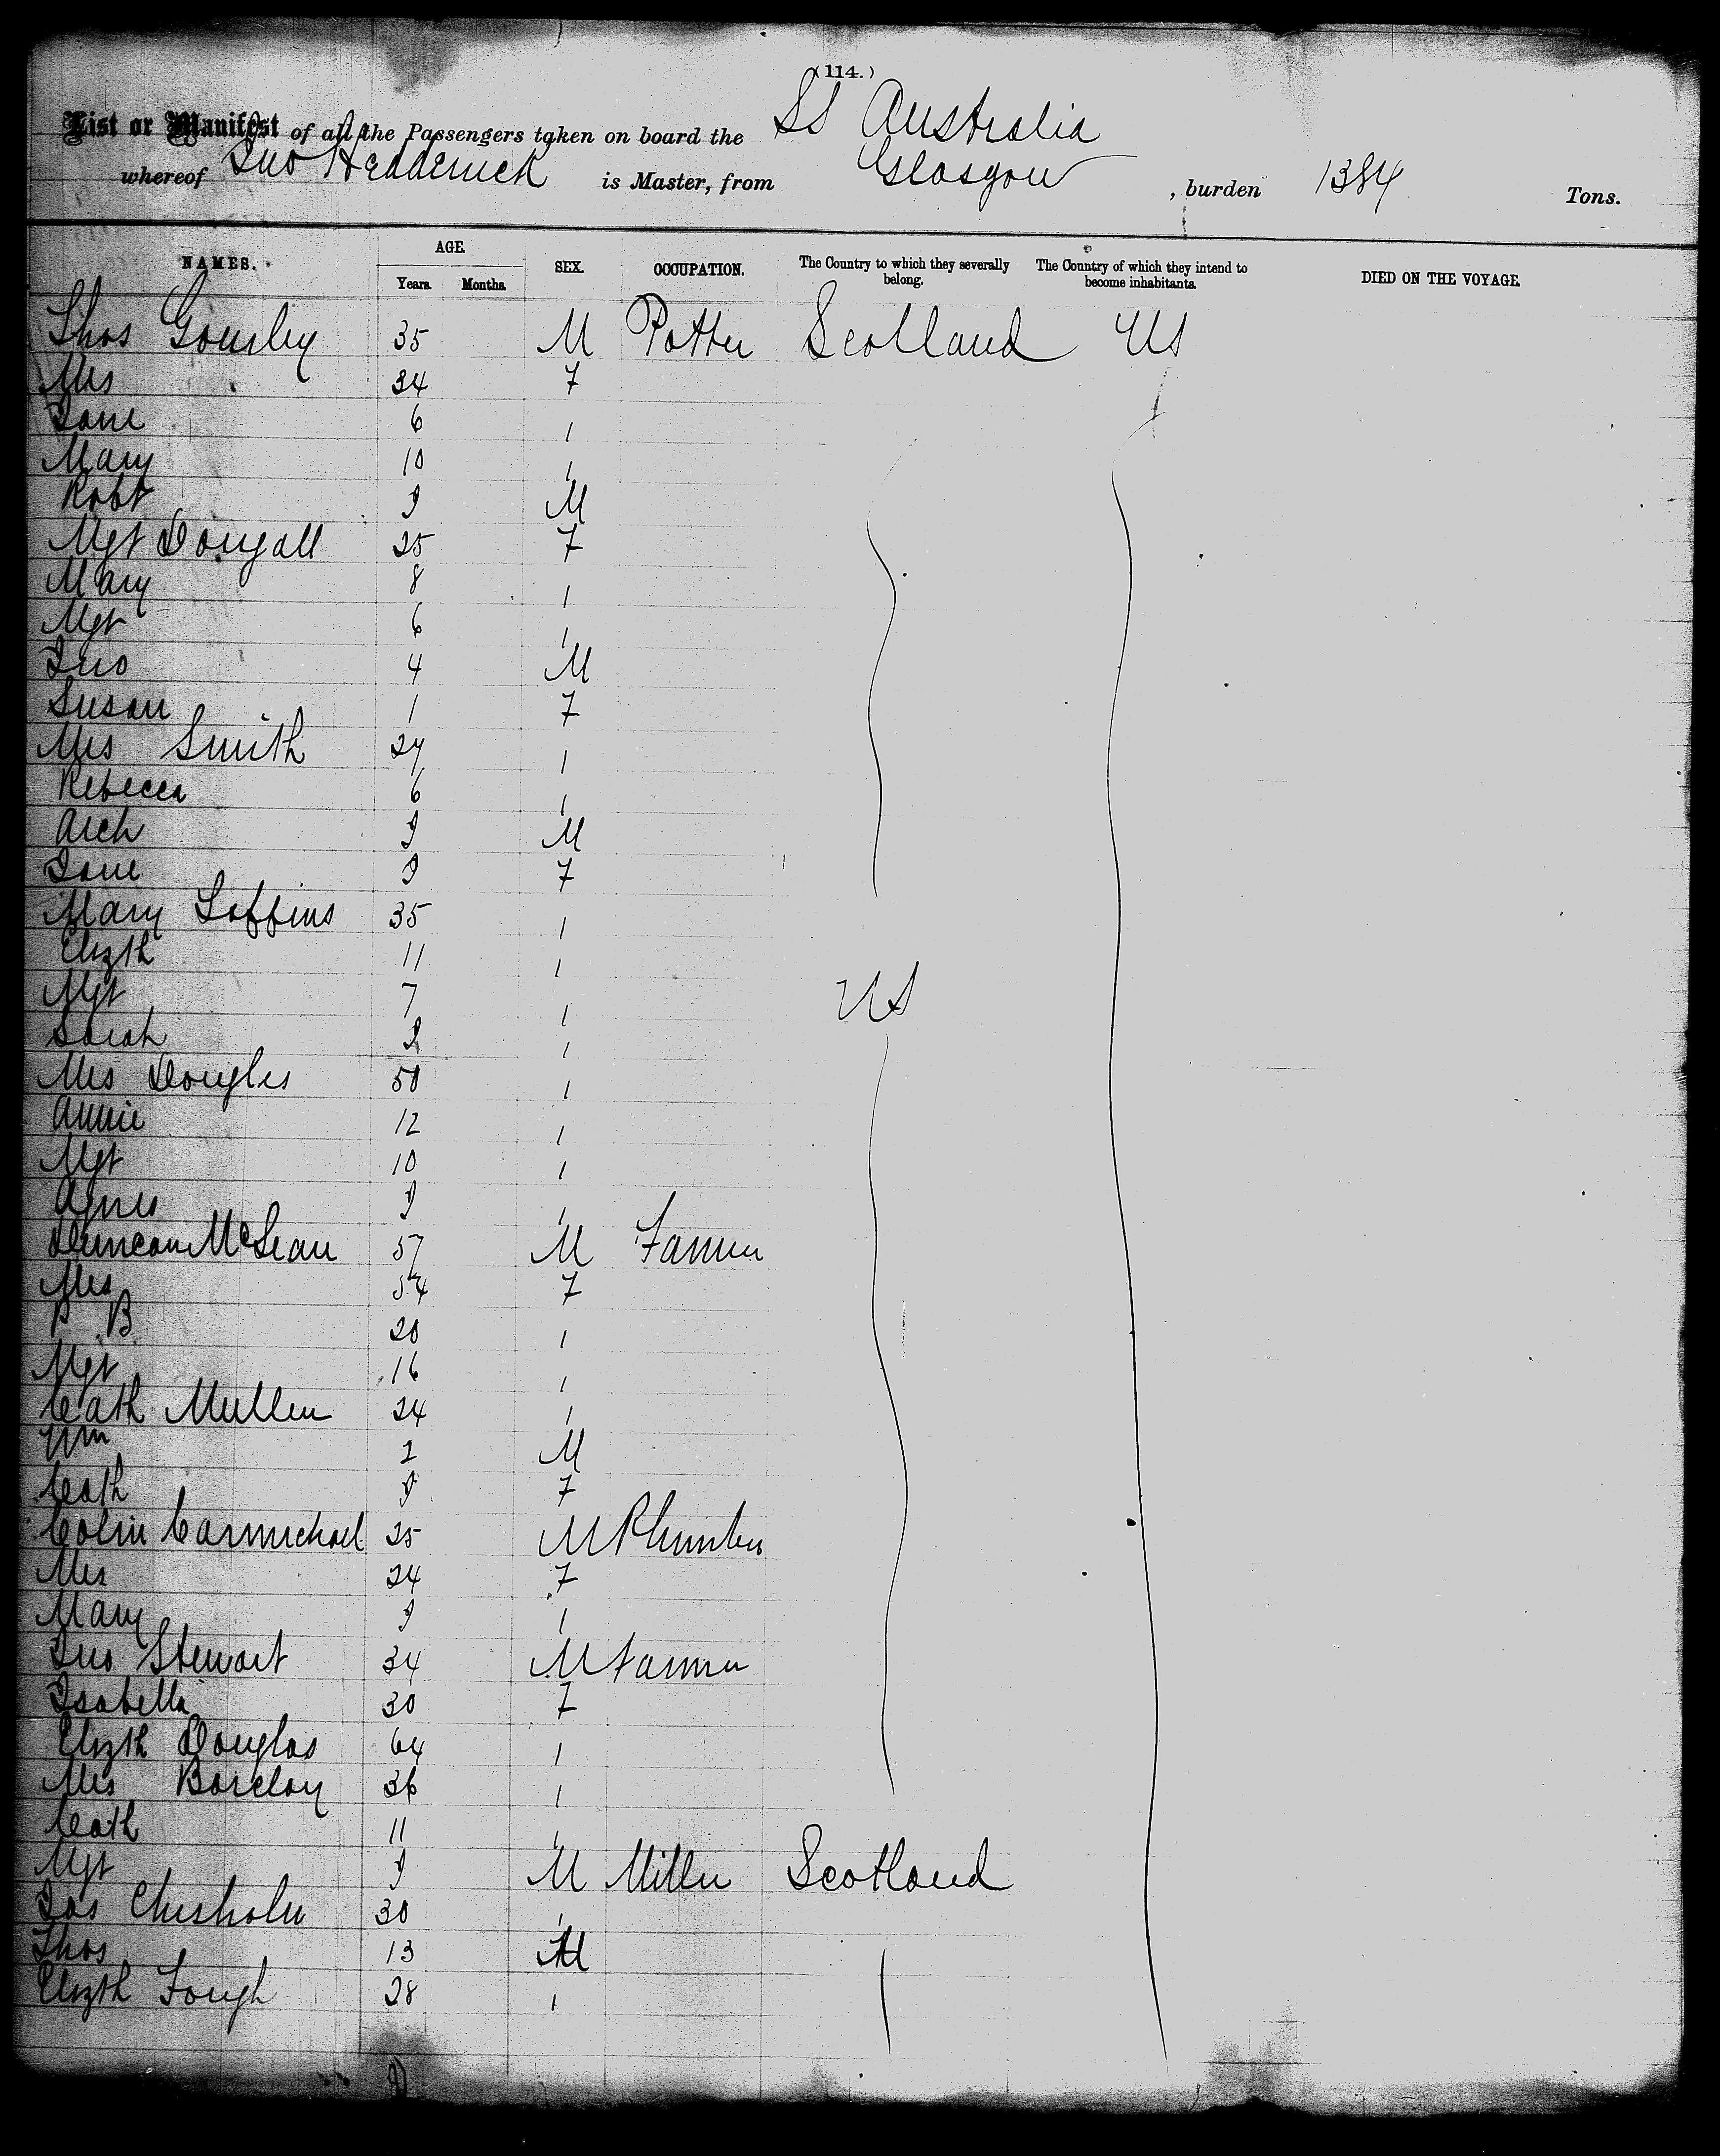 (114.)
List or Manifest of all the Passengers taken on board the SS Australia
whereof Jno Hedderwick is Master, from Glasgow, burden 1384 Tons.
NAMES. AGE. Years. Months. SEX. OCCUPATION. The Country to which they severally belong. The Country of which they intend to become inhabitants. DIED ON THE VOYAGE.
Thos Gourley 35 M Potter Scotland US
Mrs 34 F
Jane 6 "
Mary 10 "
Robt M
Mgt Dougall 25 F
Mary 8 "
Mgt 6 "
Jno 4 M
Susan 1 F
Mrs Smith "
Rebecca 6 "
Arch M
Jane F
Mary 35 "
Elizth 11 "
Mgt 7 " US
Sarah "
Mrs Douglas 50 "
Annie 12 "
Mgt 10 "
Agnes "
Duncan McLean 57 M Farmer
Mrs 54 F
P B 20 "
Mgt 16 "
Cath Mullen 24 "
Wm 2 M
Cath F
Colin Carmichael 25 M Plumber
Mrs 24 F
Mary "
Jno Stewart 34 M Farmer
Isabella 30 F
Elizth Douglas 64 "
Mrs Barclay 36 "
Cath 11 "
Mgt M Miller Scotland
Jas Chisholm 30 "
Thos 13 M
Elizth 28 "